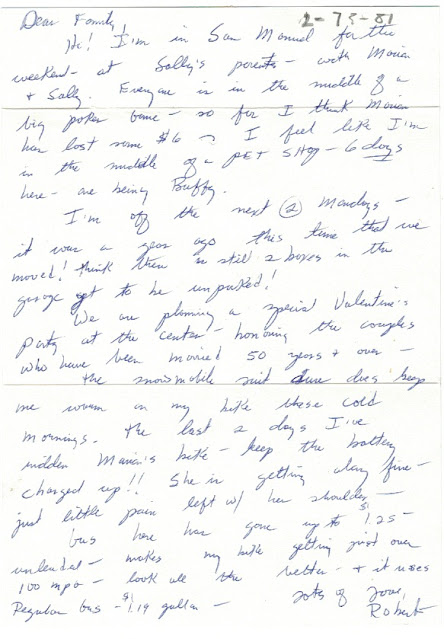 2-73-81
Dear Family,
Hi! I'm in San Manuel for the
weekend - at Sally's parents - with Marian
+ Sally. Everyone is in the middle of a
big poker game - so far I think Marian
has lost some $6 - I feel like I'm
in the middle of a PET SHOP - 6 dogs
here - one being Buffy.
I'm off the next 2 Mondays -
it was a year ago this time that we
moved! think there is still 2 boxes in the
garage yet to be unpacked!
We are planning a special Valentine's
party at the center - honoring the couples
who have been married 50 years + over -
the snowmobile suit does keep
me warm on my bike these cold
mornings. the last 2 days I've
ridden Marian's bike - keep the battery
charged up!! She is getting along fine -
just little pain left w/ her shoulder -
Gas here has gone up to $1.25 -
unleaded - makes my bike getting just over
100 mpg - look all the better - + it uses
Regular Gas - $1.19 gallon -
Lots of love,
Robert